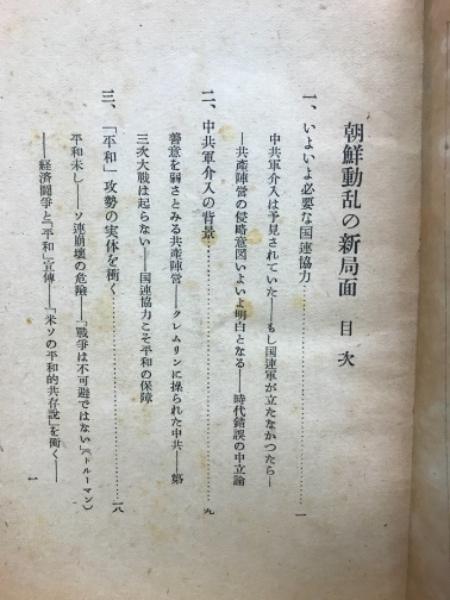 朝鮮動乱の新局面　目次
一、いよいよ必要な国連協力……………一
中共軍介入は予見されていた――もし国連軍が立たなかつたら―
―共産陣営の侵略意図いよいよ明白となる――時代錯誤の中立論
二、中共軍介入の背景……………九
善意を弱さとみる共産陣営――クレムリンに操られた中共――第
三次大戦は起らない――国連協力こそ平和の保障
三、「平和」攻勢の実体を衝く……………一八
平和未し――ソ連崩壊の危險――「戰爭は不可避ではない」（トルーマン）
――経済闘爭と「平和」宣傳――「米ソの平和的共存說」を衝く――
一